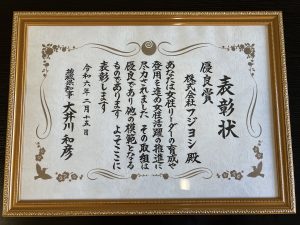 表彰状
優良賞
株式会社フジヨシ殿
あなたは女性リーダーの育成や
登用を進め女性活躍の推進に
尽力されました その取組は
優良であり他の模範となる
ものであります よってここに
表彰します
令和六年二月十五日
茨城県知事 大井川和彦